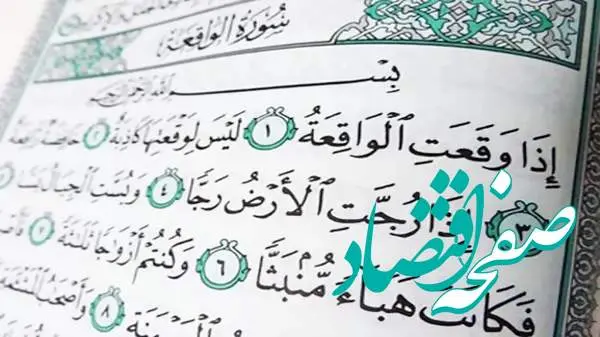 سُورَةُ الوَاقِعَةِ
بِسْمِ ٱللَّهِ ٱلرَّحْمَٰنِ ٱلرَّحِيمِ
إِذَا وَقَعَتِ ٱلْوَاقِعَةُ ١ لَيْسَ لِوَقْعَتِهَا كَاذِبَةٌ ٢ خَافِضَةٌ رَّافِعَةٌ
٣ إِذَا رُجَّتِ ٱلْأَرْضُ رَجًّا ٤ وَبُسَّتِ ٱلْجِبَالُ بَسًّا ٥
فَكَانَتْ هَبَآءً مُّنۢبَثًّا ٦ وَكُنتُمْ أَزْوَٰجًا ثَلَٰثَةً ٧
٨ وَأَصْحَٰبُ
صفحه اقتصاد